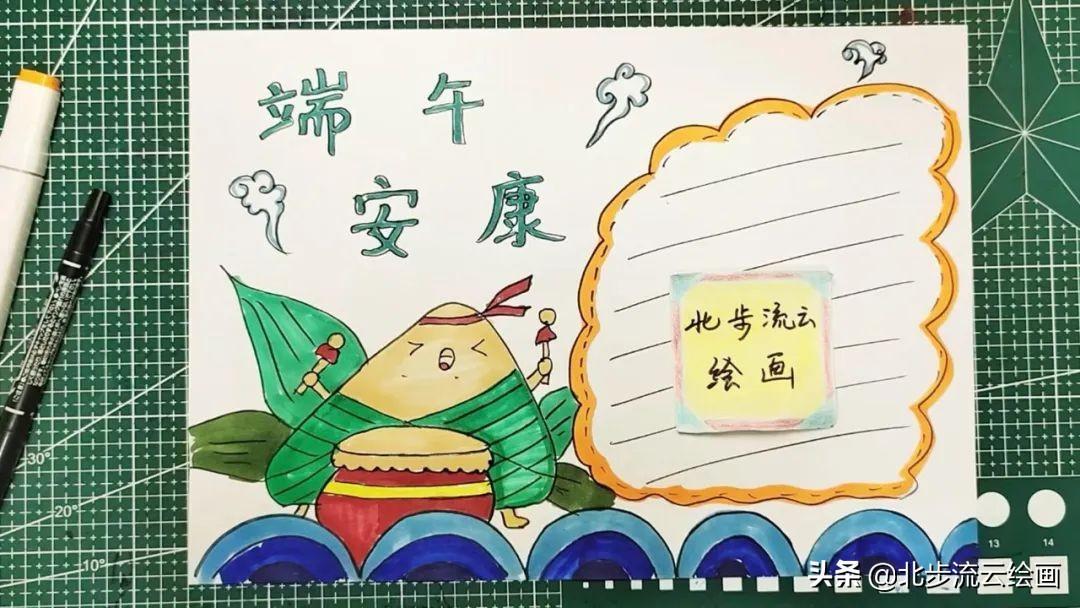 端午
安康
北步流云
绘画
30°
20°
10°
13 14
头条 @北步流云绘画